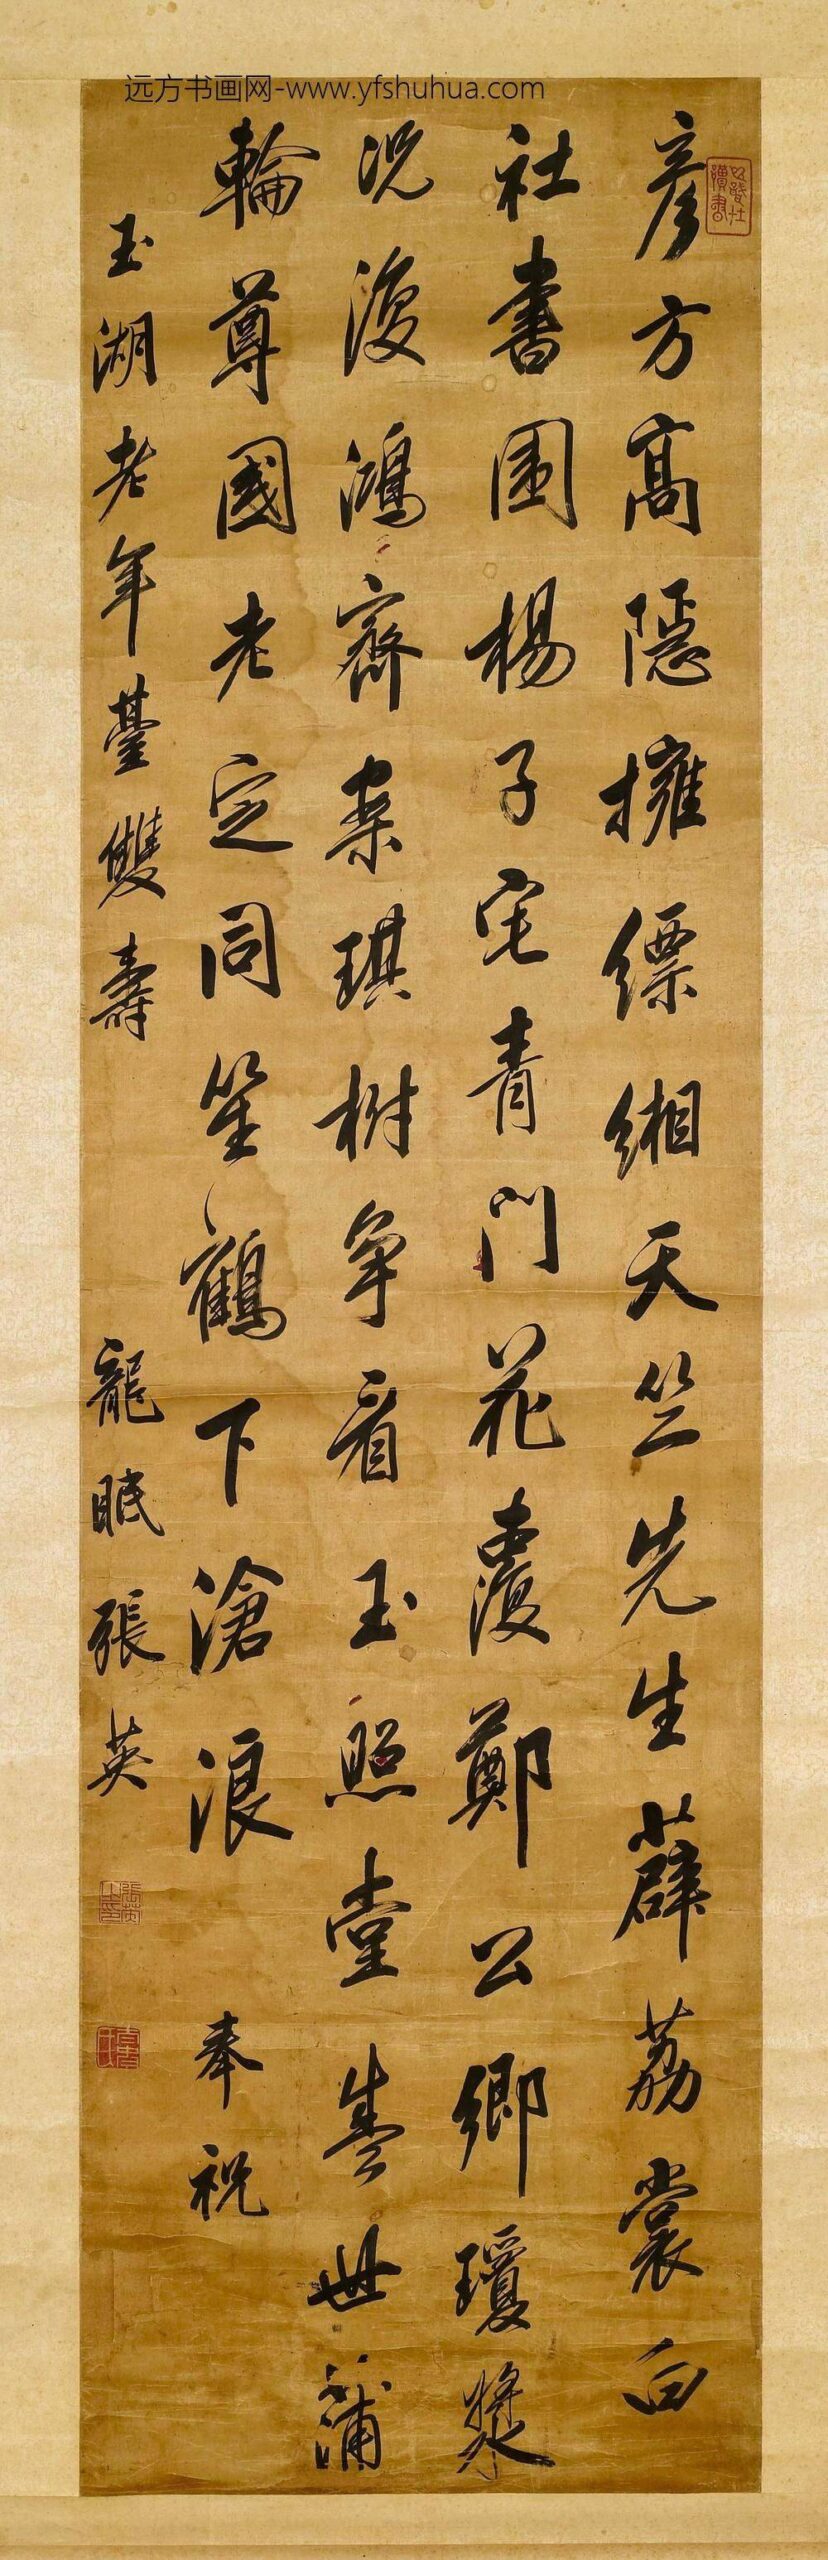 远方书画网-www.yfshuhua.com
彥方高隱擁縹緗天竺先生薜荔裳白
社書圍楊子宅青門花覆鄭公鄉瓊漿
况復鴻齊案琪樹爭看玉照堂盛世蒲
輪尊國老定同笙鶴下滄浪 奉祝
玉湖老年臺雙壽 龍眠張英
張英之印